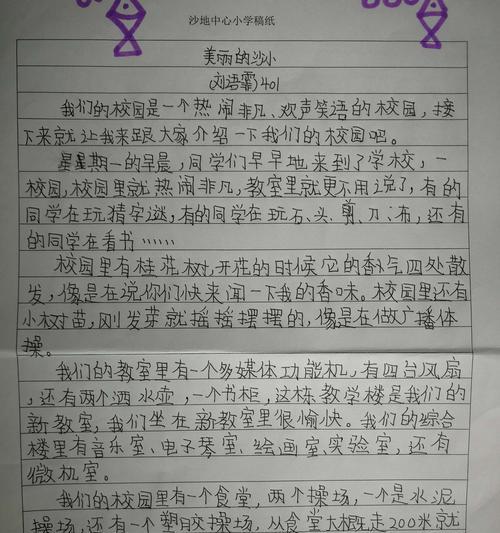 沙地中心小学稿纸
美丽的沙小
刘语霸401
我们的校园是一个热闹非凡、欢声笑语的校园，接
下来就让我来跟大家介绍一下我们的校园吧。
星星期一的早晨，同学们早早地来到了学校，一
校园，校园里就热闹非凡，教室里就更不用说了，有的
同学在玩猜字谜，有的同学在玩石、头、剪、刀、布，还有
的同学在看书……
校园里有桂花树，开花的时候它的香气四处散
发，像是在说你们快来闻一下我的香味。校园里还有
小树苗，刚发芽就摇摇摆摆的，像是在做广播体
操。
我们的教室里有一个多媒体功能机，有四台风扇
，还有两个洒水壶，一个书柜，这栋教学楼是我们的
新教室，我们坐在新教室里很愉快。我们的综合
楼里有音乐室、电子琴室、绘画室、实验室，还有
微机室。
我们的校园里有一个食堂，两个操场，一个是水泥
操场，还有一个塑胶操场，从食堂大概走200米就